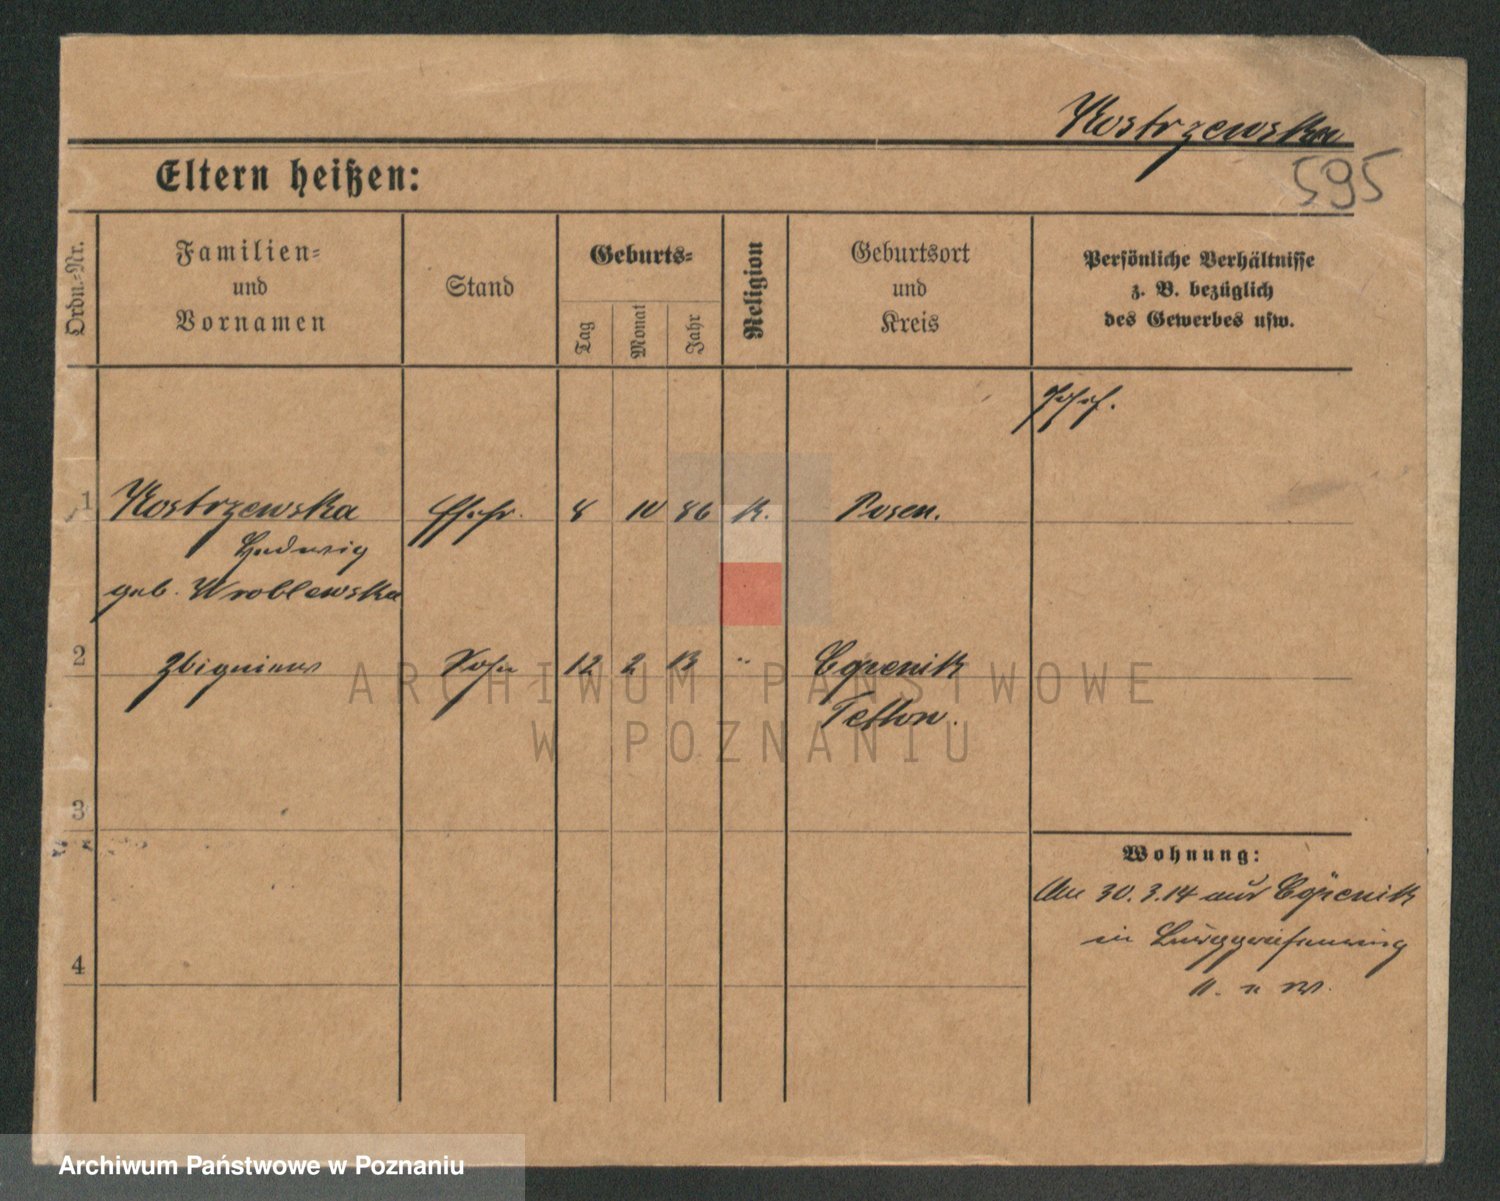 Kostrzewska
595
Eltern heißen:
Ordn.-Nr.
Familien-
und
Vornamen
Stand
Geburts-
Tag
Monat
Jahr
Religion
Geburtsort
und
Kreis
Persönliche Verhältnisse
z. B. bezüglich
des Gewerbes usw.
1 Kostrzewska Ehefr. 8 10 86 K. Posen.
Hedwig
geb. Wroblewska
2 Zbigniew Sohn 12 2 13 " Cöpenik
Teltow.
3
4
Wohnung:
Am 30.3.14 aus Cöpenik
in
ARCHIWUM PAŃSTWOWE
W POZNANIU
Archiwum Państwowe w Poznaniu